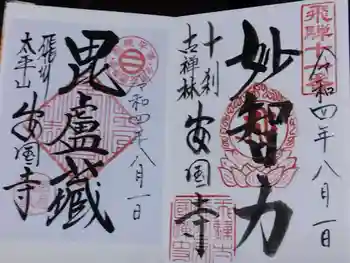 令和四年八月一日
妙智力
十刹
古禅林
安国寺
令和四年八月一日
毘盧蔵
飛州
太平山
安国寺